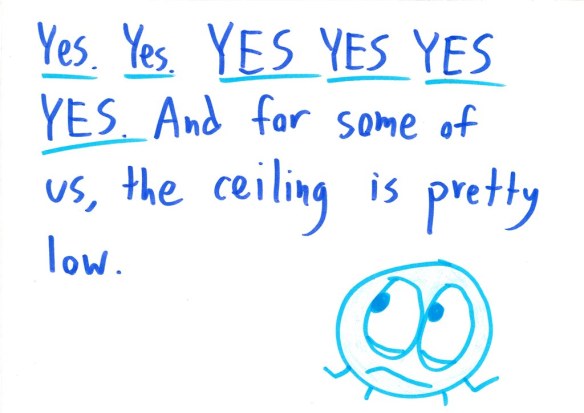 Yes. Yes. YES YES YES
YES. And for some of
us, the ceiling is pretty
low.